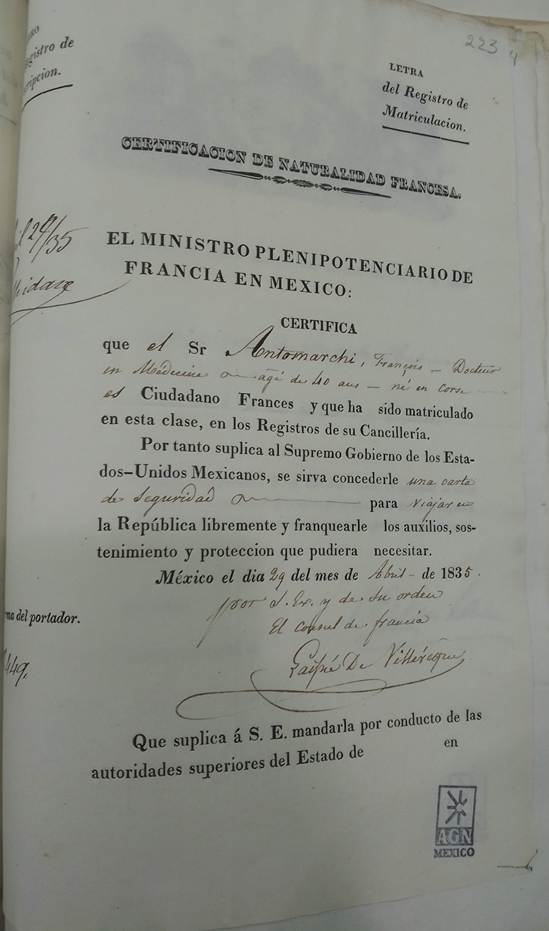 223
LETRA
del Registro de
Matriculacion.
gistro de
ripcion.
CERTIFICACION DE NATURALIDAD FRANCESA.
29/35
EL MINISTRO PLENIPOTENCIARIO DE
FRANCIA EN MEXICO:
CERTIFICA
que el Sr Antomarchi, François – Docteur
en Médecine – agé de 40 ans – né en Corse
es Ciudadano Frances y que ha sido matriculado
en esta clase, en los Registros de su Cancillería.
Por tanto suplica al Supremo Gobierno de los Esta-
dos-Unidos Mexicanos, se sirva concederle una carta
de Seguridad para viajar en
la República libremente y franquearle los auxilios, sos-
tenimiento y proteccion que pudiera necesitar.
México el dia 29 del mes de Abril de 1835.
por S. Ex. y de su orden
El consul de francia
ma del portador.
449.
Que suplica á S. E. mandarla por conducto de las
autoridades superiores del Estado de en
AGN
MEXICO